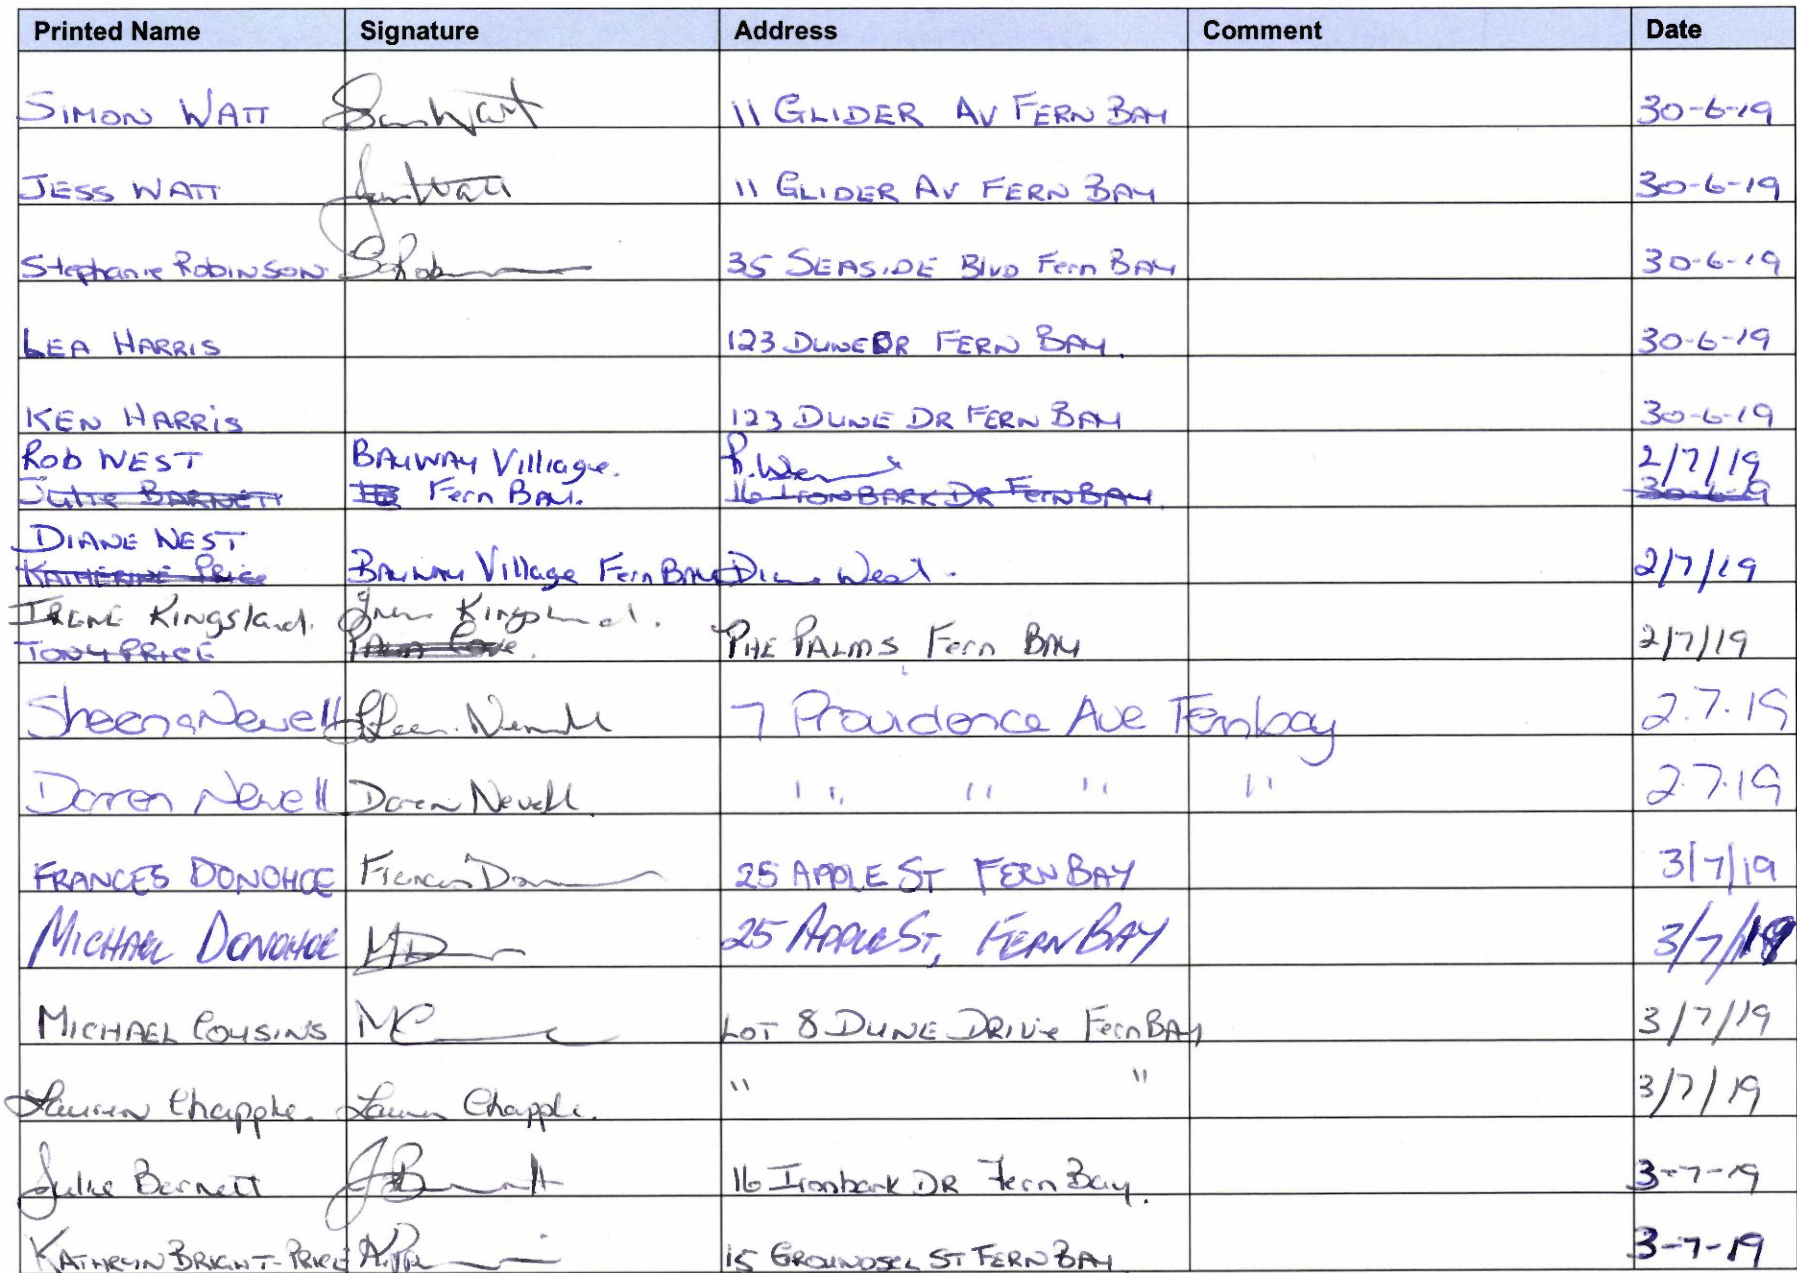 Printed Name Signature Address Comment Date
SIMON WATT Simon Watt 11 GLIDER AV FERN BAY 30-6-19
JESS WATT Jess Watt 11 GLIDER AV FERN BAY 30-6-19
Stephanie ROBINSON 35 SEASIDE BLVD Fern BAY 30-6-19
LEA HARRIS 123 DUNE DR FERN BAY. 30-6-19
KEN HARRIS 123 DUNE DR FERN BAY 30-6-19
ROB WEST BAYWAY Villiage. R. West 2/7/19
Julie BARNETT Fern BAY. 16 IRONBARK DR Fern BAY. 30-6-19
DIANE WEST
KATHERINE PRICE BAYWAY Village Fern BAY Diane West. 2/7/19
IRENE Kingsland. Irene Kingsland.
TONY PRICE Palm Cove. THE PALMS Fern BAY 2/7/19
Sheena Newell Sheena Newell 7 Providence Ave Fernbay 2.7.19
Darren Newell Darren Newell " " " " 2.7.19
FRANCES DONOHOE Frances 25 APPLE ST FERN BAY 3/7/19
MICHAEL DONOHOE MD 25 APPLE ST, FERN BAY 3/7/19
MICHAEL COUSINS MC LOT 8 DUNE DRIVE Fern BAY 3/7/19
Lauren Chapple. Lauren Chapple. " " 3/7/19
Julie Barnett 16 Ironbark DR Fern Bay. 3-7-19
KATHRYN BRIGHT-PRICE 15 GROUNDSEL ST FERN BAY 3-7-19